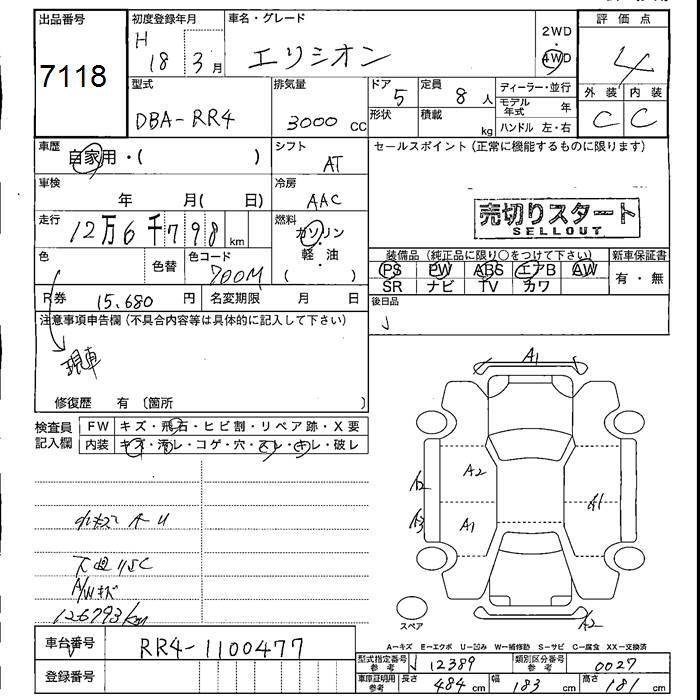 出品番号 初度登録年月 車名・グレード 2WD 評価点
7118 H 18年 3月 エリシオン 4WD 4
外装 内装
型式 排気量 ドア 5 定員 8人 ディーラー・並行 C C
DBA-RR4 3000 cc 形状 積載 kg モデル年式 年
ハンドル 左・右
車歴 自家用・( ) シフト AT セールスポイント(正常に機能するものに限ります)
車検 年 月( 日) 冷房 AAC
走行 12万6千798 km 燃料 ガソリン・軽・油 ( )
売切りスタート
SELLOUT
色 色替 色コード 700M
装備品(純正品に限り○をつけて下さい) 新車保証書
PS PW ABS エアB AW 有・無
SR ナビ TV カワ
R券 15.680 円 名変期限 月 日 後日品
注意事項申告欄(不具合内容等は具体的に記入して下さい)
現車
修復歴 有 〔箇所 〕
検査員記入欄 FW キズ・飛石・ヒビ割・リペア跡・X要
内装 キズ・汚レ・コゲ・穴・スレ・キレ・破レ
A1
A2 A2 A1
A3 A1
A/Wキズ
126793km
スペア A2
A-キズ E-エクボ U-凹み W-補修跡 S-サビ C-腐食 XX-交換済
車台番号 RR4-1100477
型式指定番号参考 12389 類別区分番号参考 0027
登録番号 車庫証明用参考 長さ 484 cm 幅 183 cm 高さ 181 cm